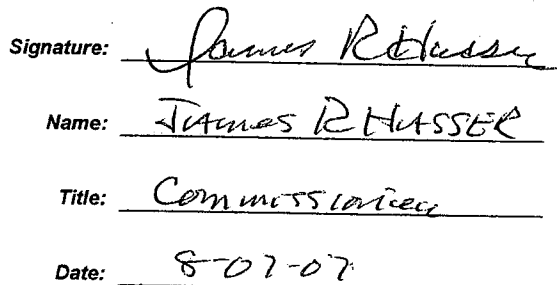 Signature: James R Hasser
Name: JAMES R HASSER
Title: Commissioner
Date: 8-07-07